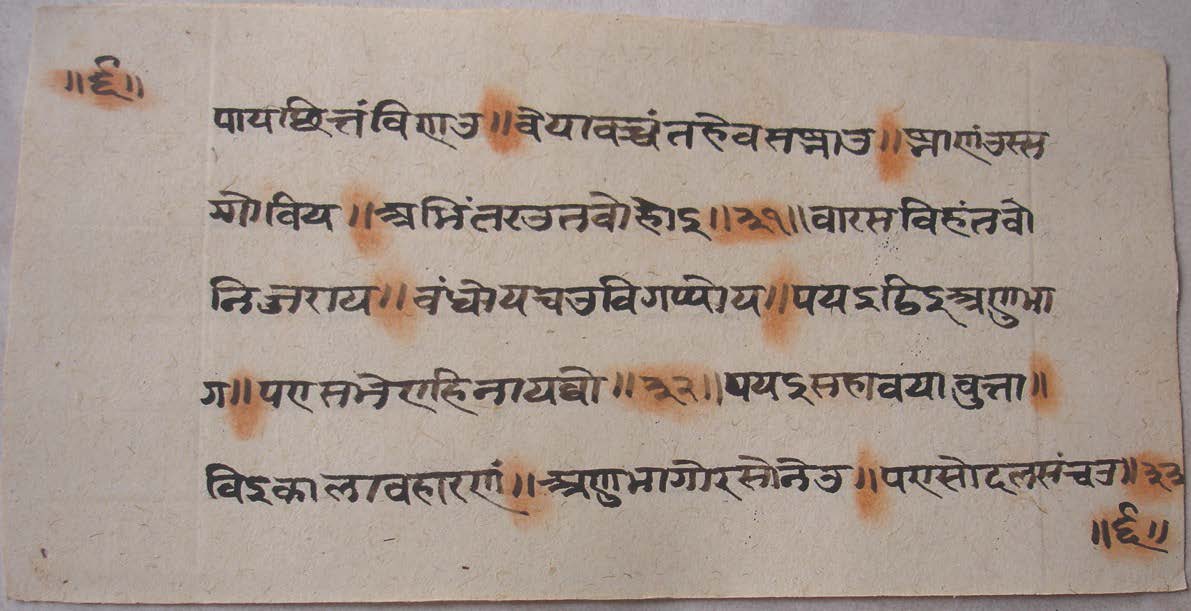 ॥६॥
पायछित्तंविणउ॥वेयावच्चंतहेवसझाउ॥झाणंउस्स
गोविय॥अभिंतरउतवोहोइ॥३१॥बारसविहंतवो
निज्जराय॥बंधोयचउविगप्पोय॥पयइठिइअणुभा
ग॥पएसभेएहिनायवो॥३२॥पयइसहावयावुत्ता॥
ठिइकालावहारणं॥अणुभागोरसोनेउ॥पएसोदलसंचउ॥३३
॥६॥